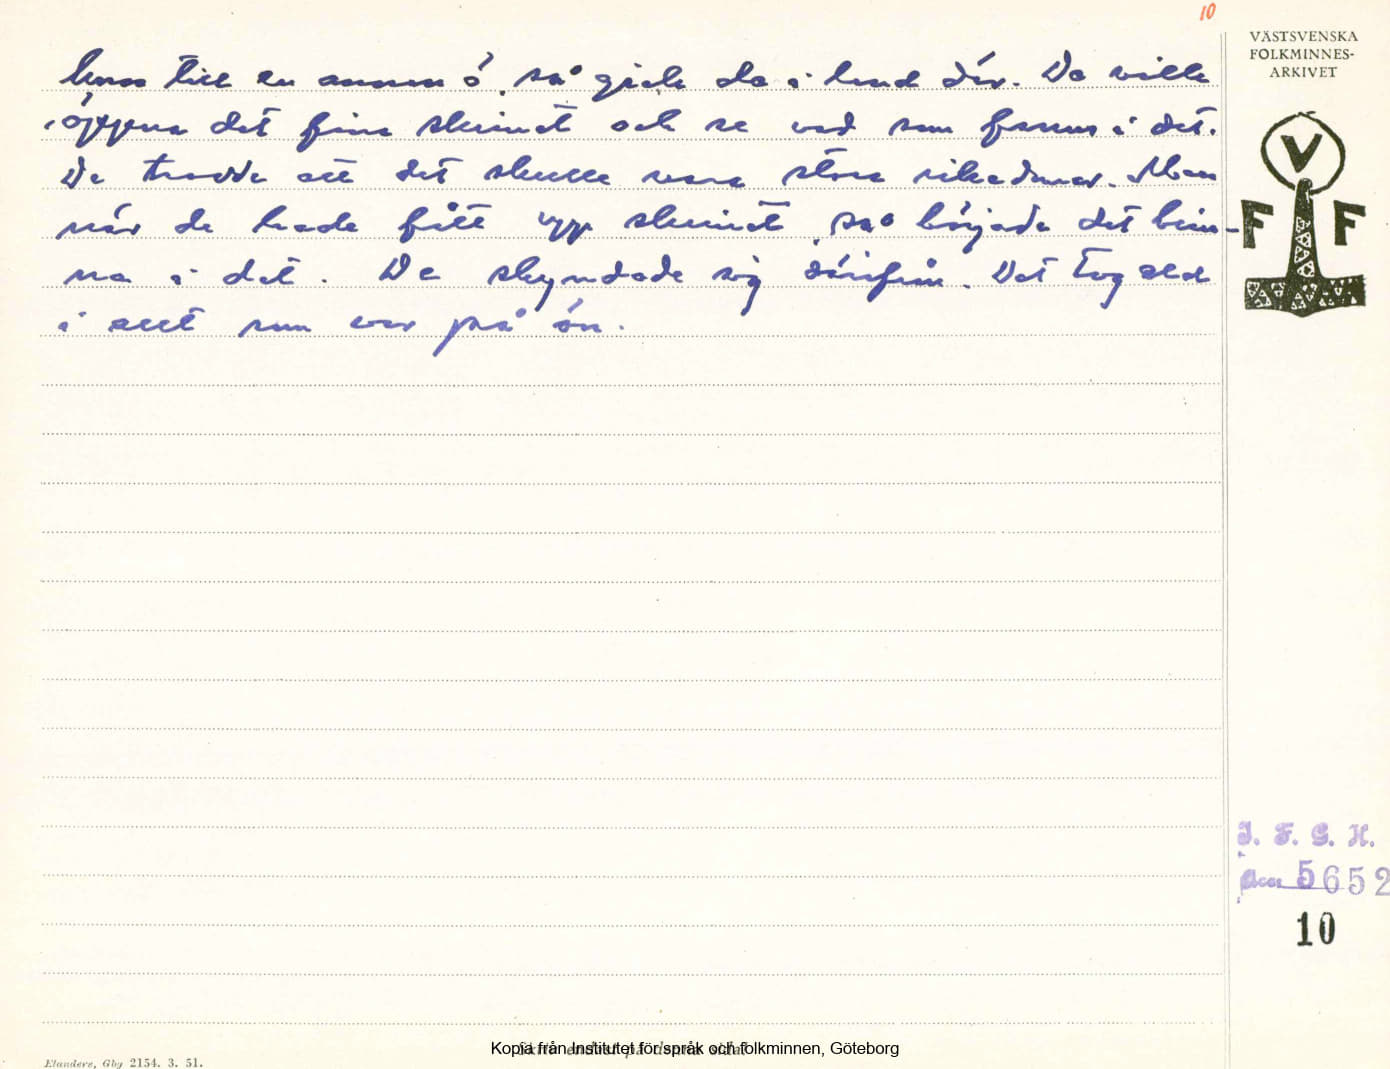 10
VÄSTSVENSKA
FOLKMINNES-
ARKIVET
V
F F
kom till en annan ö, så gick de i land där. De ville
öppna det fina skrinet och se vad som fanns i det.
De trodde att det skulle vara stora rikedomar. Men
när de hade fått upp skrinet, så började det brin-
na i det. De skyndade sig därifrån. Det tog eld
i allt som var på ön.
I. F. G. H.
Acc 5652
10
Kopia från Institutet för språk och folkminnen, Göteborg
Elanders, Gbg 2154. 3. 51.